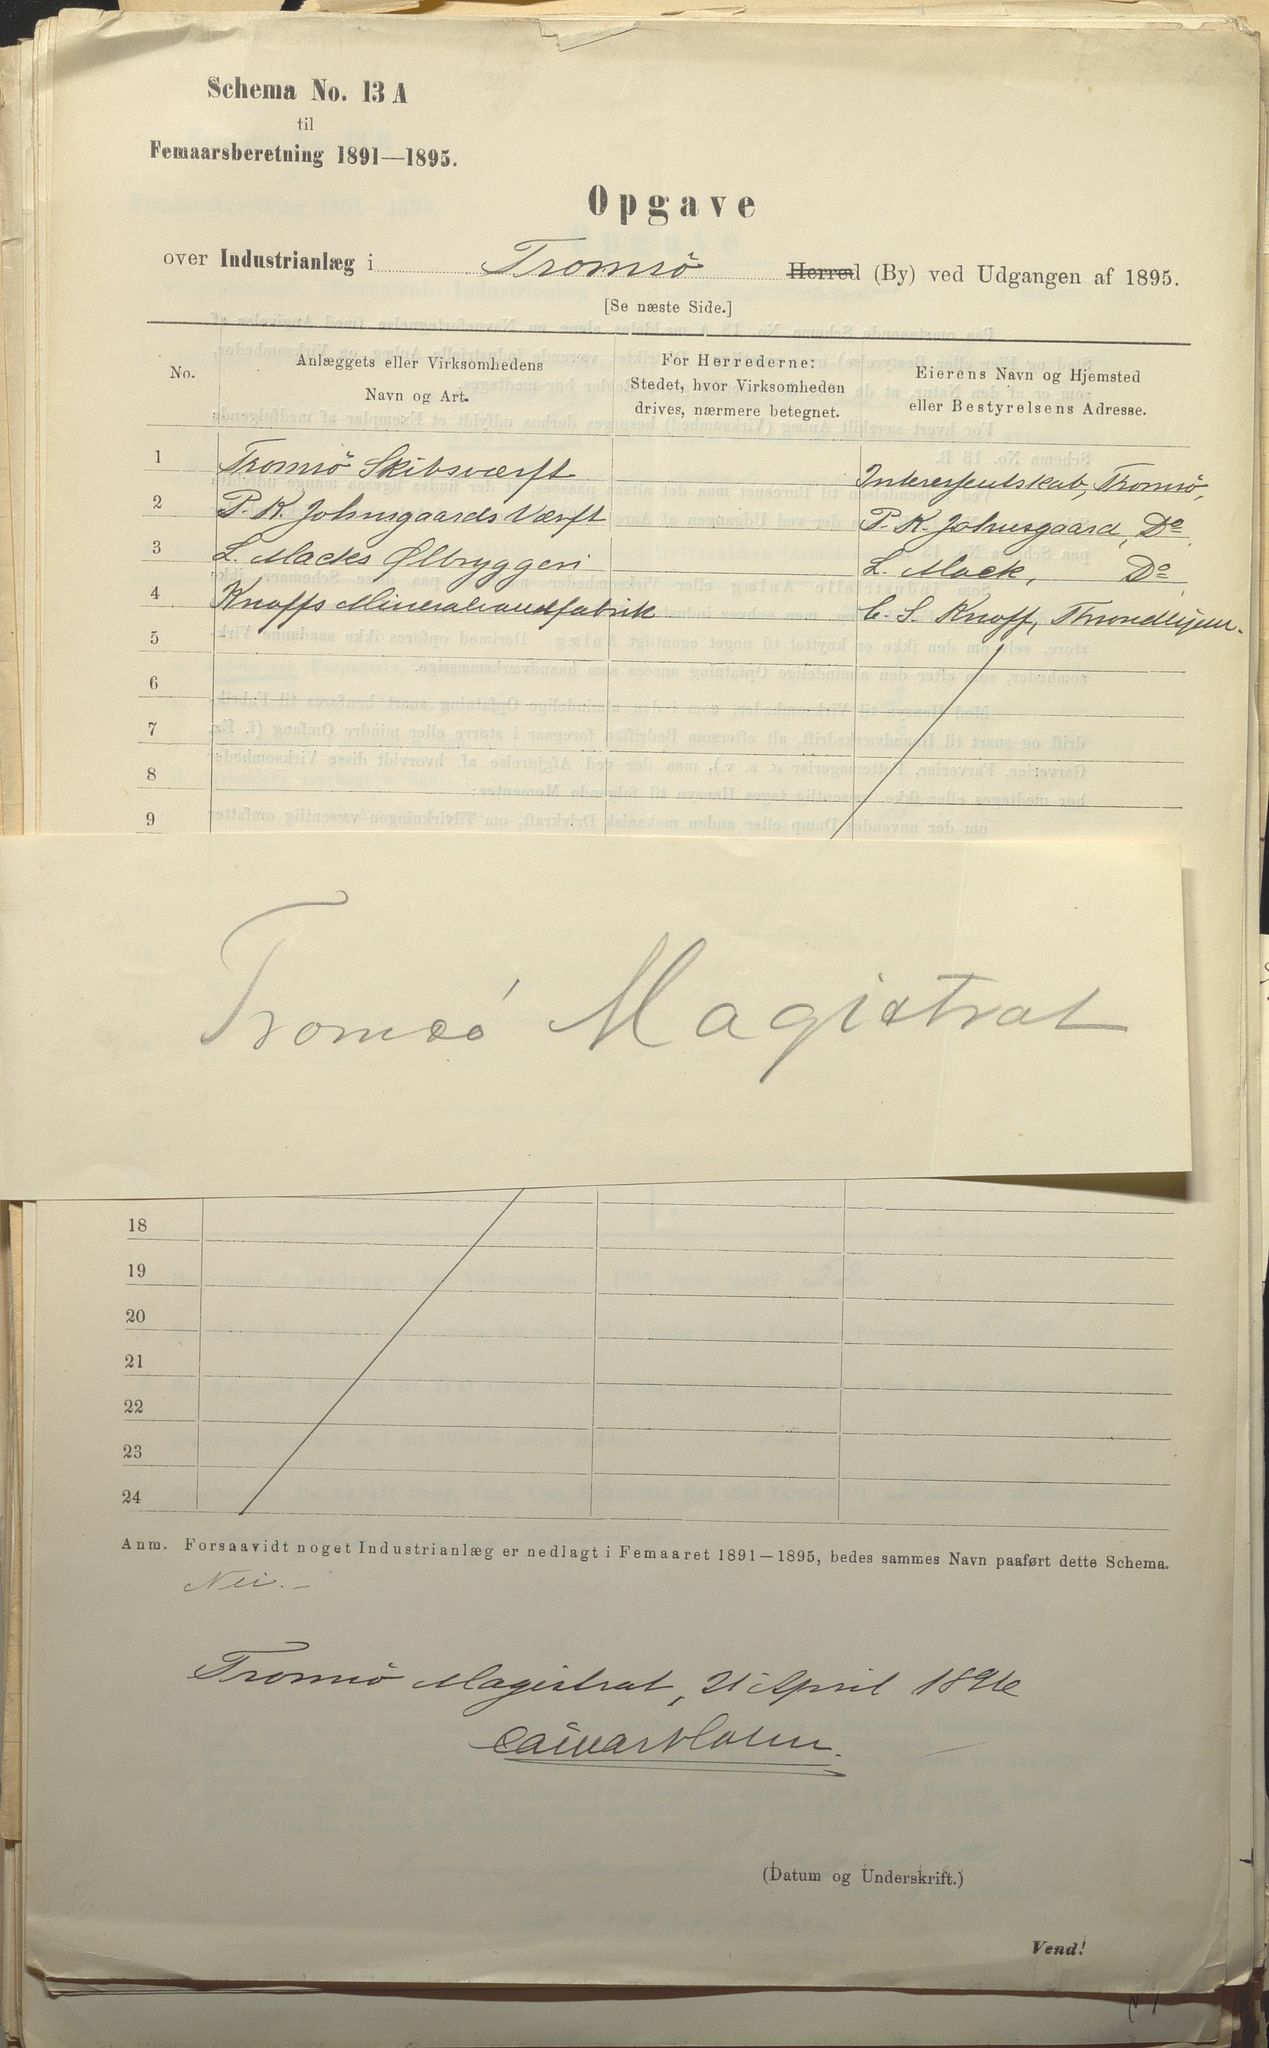 Schema No. 13 A
til
Femaarsberetning 1891—1895.
Opgave
over Industrianlæg i Tromsö Herred (By) ved Udgangen af 1895.
[Se næste Side.]
No.
Anlæggets eller Virksomhedens
Navn og Art.
For Herrederne:
Stedet, hvor Virksomheden
drives, nærmere betegnet.
Eierens Navn og Hjemsted
eller Bestyrelsens Adresse.
1 Tromsö Skibsværft Interessentskab, Tromsö,
2 P. K. Johnsgaards Værft P. K. Johnsgaard, Do
3 L. Macks Ølbryggeri L. Mack, Do
4 Knoffs Mineralvandfabrik C. S. Knoff, Throndhjem.
5
6
7
8
9
Tromsö Magistrat
18
19
20
21
22
23
24
Anm. Forsaavidt noget Industrianlæg er nedlagt i Femaaret 1891—1895, bedes sammes Navn paaført dette Schema.
Nei.—
Tromsö Magistrat, 21 April 1896
(Datum og Underskrift.)
Vend!